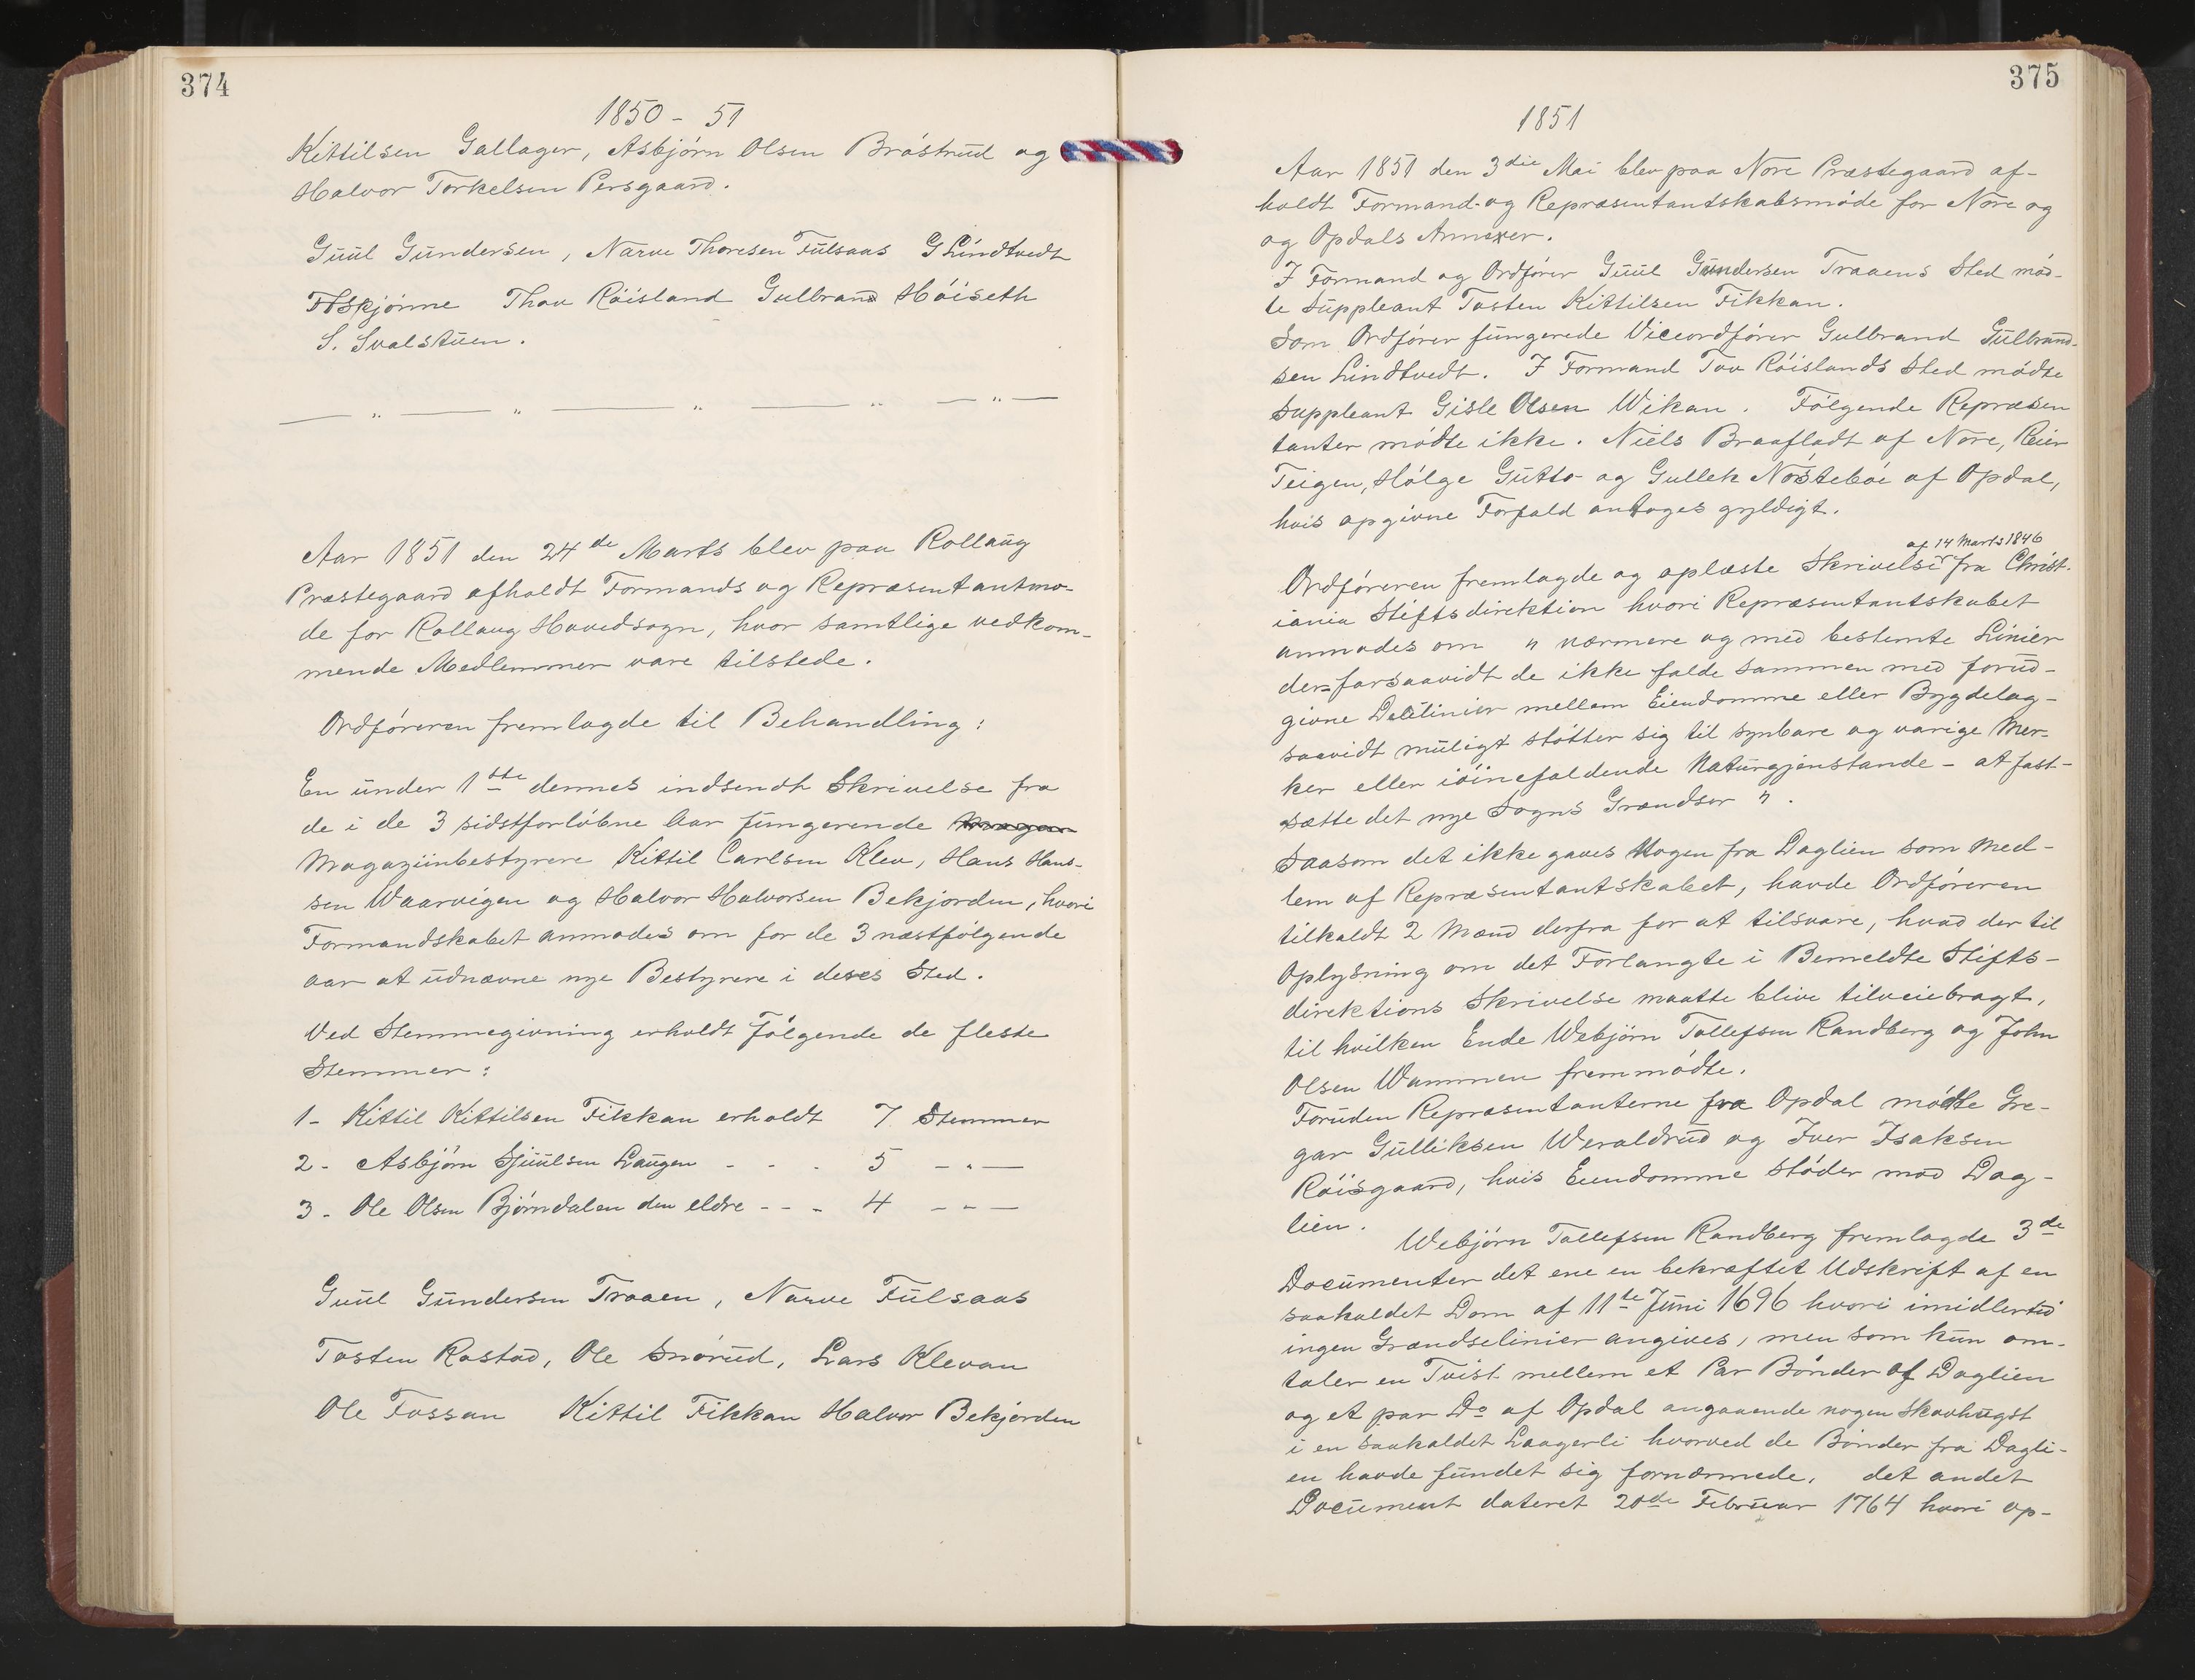 374
1850 - 51
Kittilsen Gallager, Asbjórn Olsen Bróstrud og
Halvor Torkelsen Persgaard.
Guul Gundersen, Narve Thoresen Fulsaas G Lindtvedt
Thov Róisland Gulbrand Hóiseth
S. Svalstuen.
Aar 1851 den 24de Marts blev paa Rollaug
Præstegaard afholdt Formands og Repræsentantmø-
de for Rollaug Hovedsogn, hvor samtlige vedkom-
mende Medlemmer vare tilstede.
Ordfóreren fremlagde til Behandling:
En under 1ste dennes indsendt Skrivelse fra
de i de 3 sidstforlóbne Aar fungerende
Magaziinbestyrere Kittil Carlsen Klev, Hans Hans-
sen Waarvigen og Halvor Halvorsen Bekjorden, hvori
Formandskabet anmodes om for de 3 næstfólgende
aar at udnævne nye Bestyrere i deres Sted.
Ved Stemmegivning erholdt Fólgende de fleste
Stemmer:
1- Kittil Kittilsen Fikkan erholdt 7 Stemmer
2- Asbjórn Sjuulsen Laugen - - - 5 - " -
3- Ole Olsen Bjórndalen den eldre - - - 4 - " -
Guul Gundersen Traaen, Narve Fulsaas
Tosten Rostad, Ole Snórud, Lars Klevan
Ole Fossan Kittil Fikkan Halvor Bekjorden
375
1851
Aar 1851 den 3die Mai blev paa Nore Præstegaard af-
holdt Formand- og Repræsentantskabsmóde for Nore og
og Opdals Annexer.
I Formand og Ordfórer Guul Gundersen Traaens Sted mód-
te Suppleant Tosten Kittilsen Fikkan.
Som Ordfórer fungerede Viceordfórer Gulbrand Gulbrand-
sen Lindtvedt. I Formand Tov Róislands Sted módte
Suppleant Gisle Olsen Wikan. Fólgende Repræsen
tanter módte ikke. Niels Braafladt af Nore, Reier
Teigen, Hólge Gutto og Gullek Nóstebóe af Opdal,
hvis opgivne Forfald antoges gyldigt.
af 14 Marts 1846
Ordfóreren fremlagde og oplæste Skrivelse fra Christ-
iania Stiftsdirektion hvori Repræsentantskabet
anmodes om " nærmere og med bestemte Linier
der forsaavidt de ikke falde sammen med forud-
givne Delelinier mellem Eiendomme eller Bygdelag-
saavidt muligt stótter sig til synbare og varige Mer-
ker eller ióinefaldende Naturgjenstande - at fast-
sætte det nye Sogns Grændser ".
Saasom det ikke gaves Nogen fra Daglien som Med-
lem af Repræsentantskabet, havde Ordfóreren
tilkaldt 2 Mænd derfra for at tilsvare, hvad der til
Oplysning om det Forlangte i Bemeldte Stifts-
direktions Skrivelse maatte blive tilveiebragt,
til hvilken Ende Webjórn Tollefsen Randberg og John
Olsen Wammen fremmódte.
Foruden Repræsentanterne fra Opdal módte Gre-
gar Gulliksen Weraldrud og Iver Isaksen
Róisgaard, hvis Eiendomme stóder mod Dag-
lien.
Webjórn Tollefsen Randberg fremlagde 3de
Documenter det ene en bekræftet Udskrift af en
saakaldet Dom af 11te Juni 1696 hvori imidlertid
ingen Grændselinier angives, men som kun om-
taler en Tvist mellem et Par Bónder af Daglien
og et par Do af Opdal angaaende nogen Skovhugst
i en saakaldet Laagerli hvorved de Bónder fra Dagli-
en havde fundet sig fornærmede. det andet
Document dateret 20de Februar 1764 hvori op-